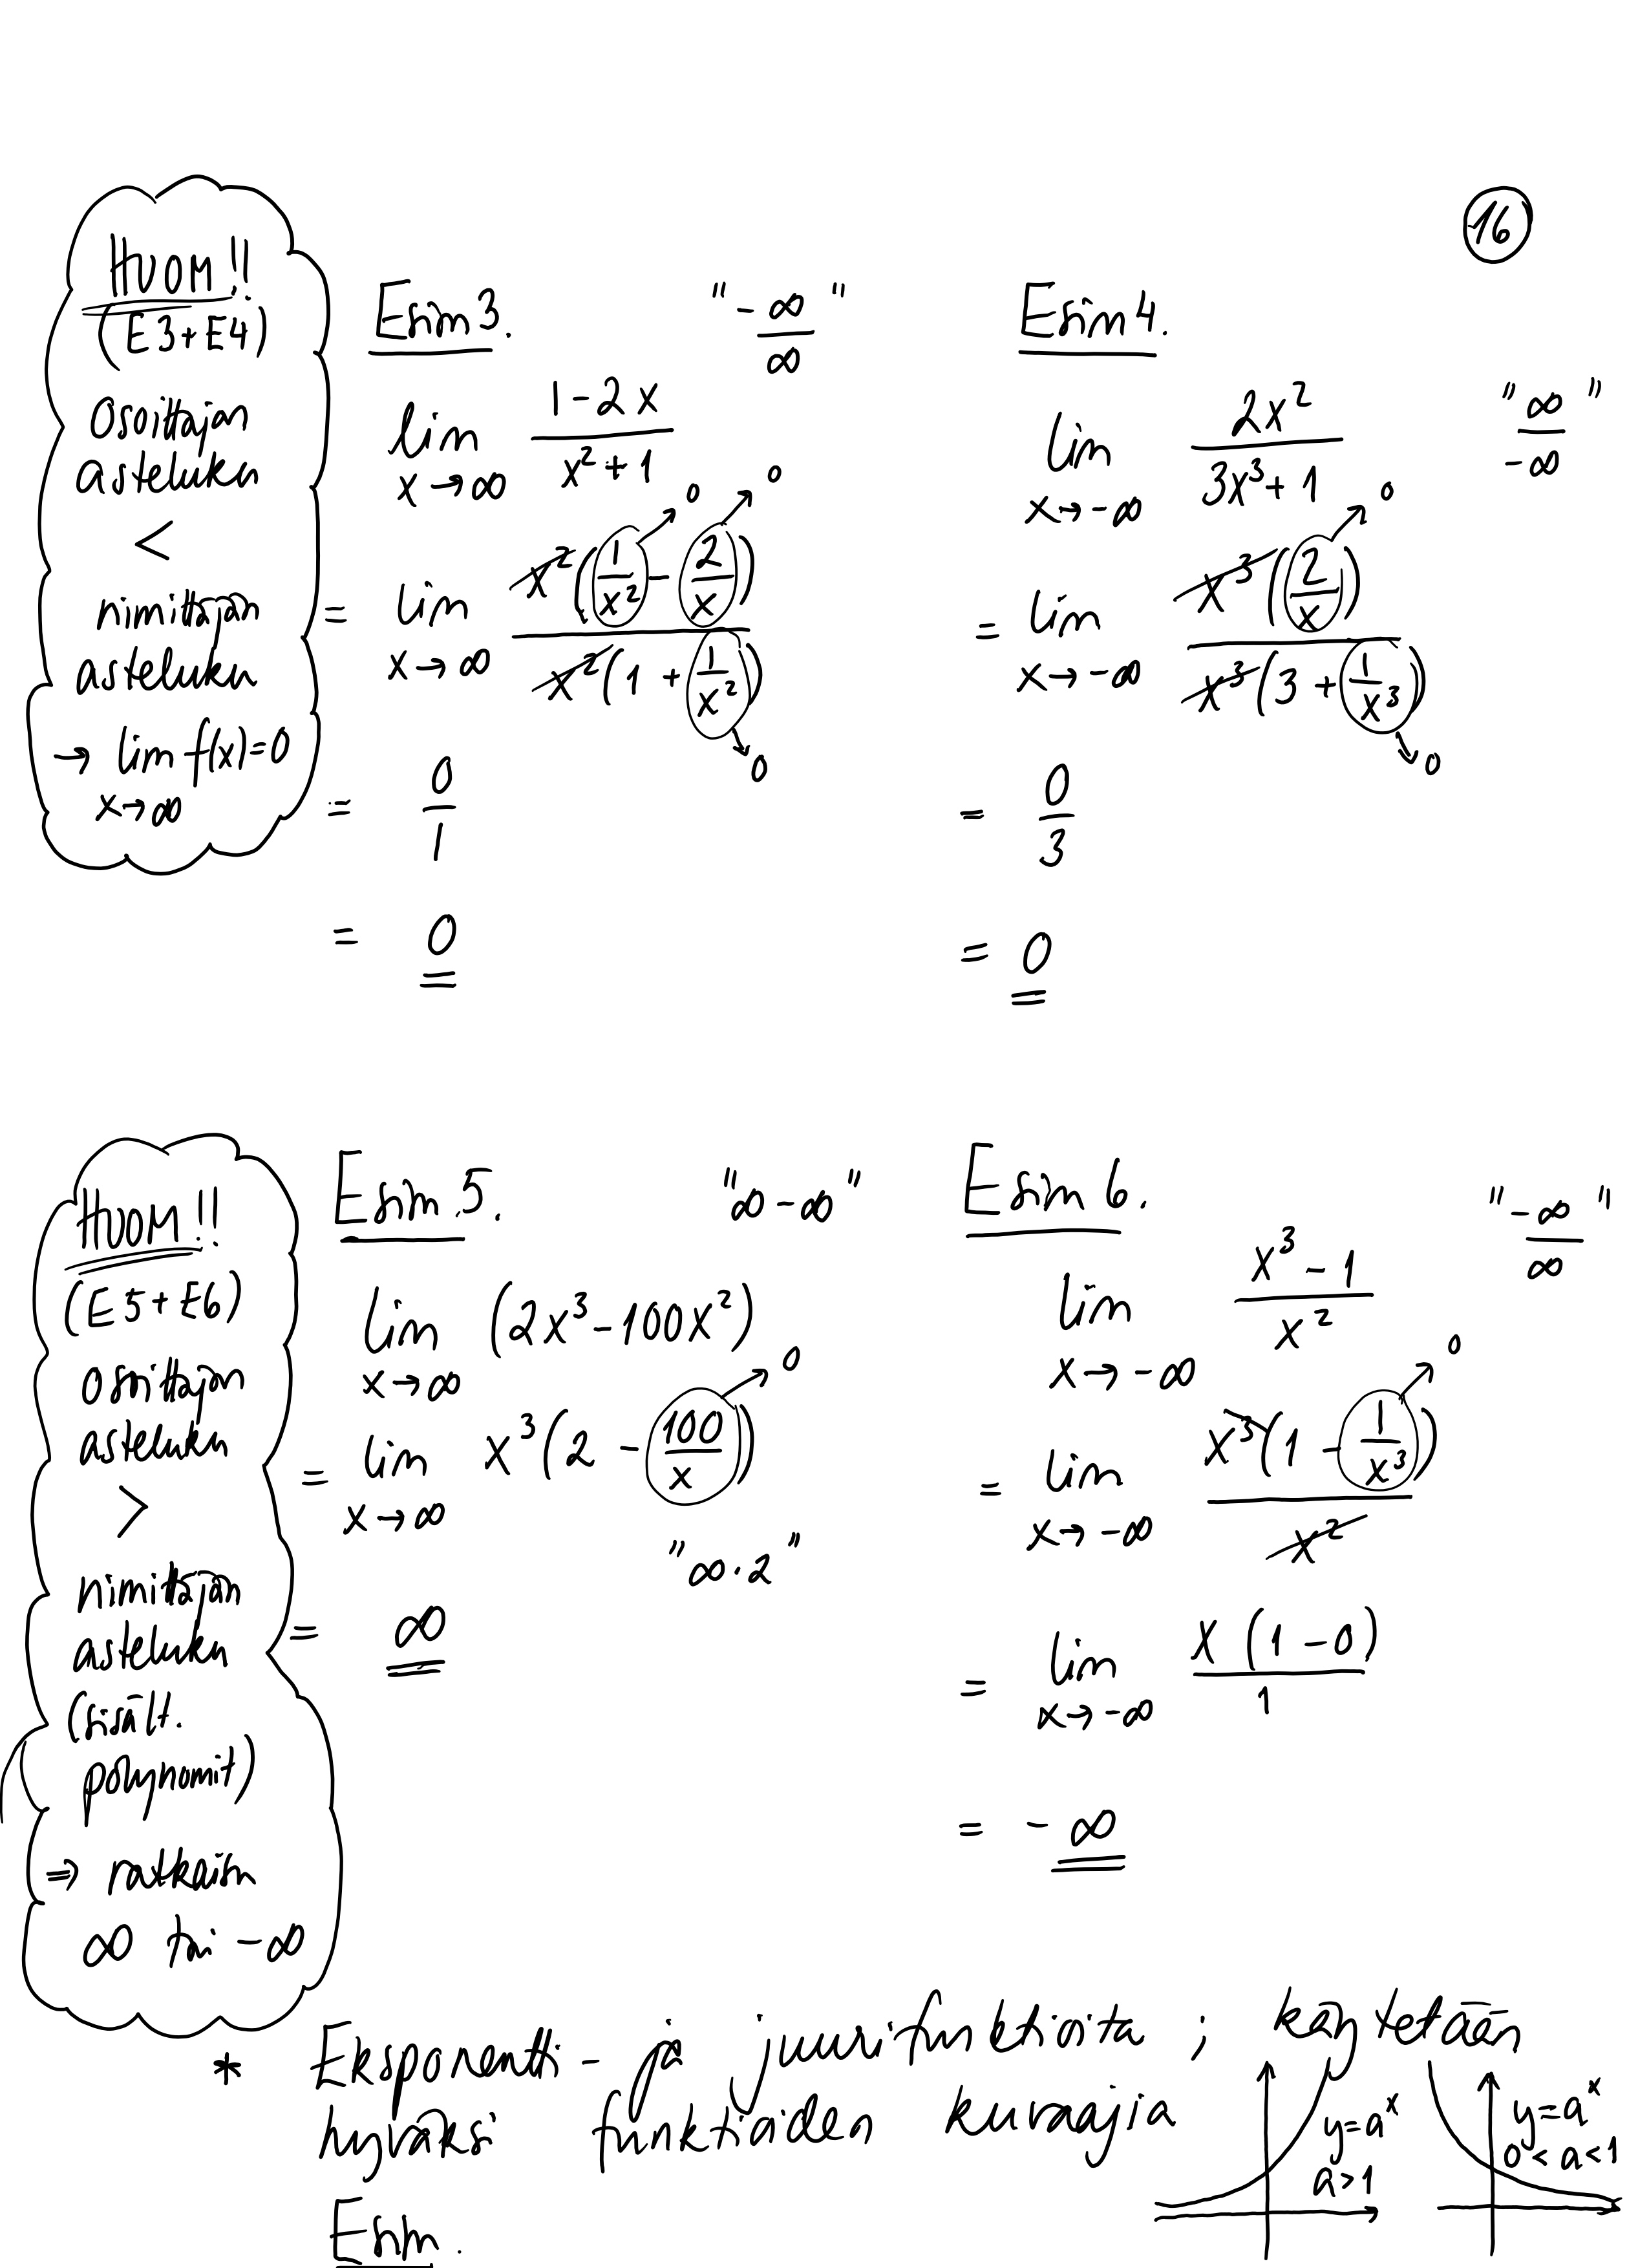 16
HUOM!!
(E3+E4)
Osoittajan
asteluku
<
nimittäjän
asteluku
→ lim f(x)=0
x→∞
Esim 3.
"-∞/∞"
lim x→∞ (1-2x)/(x²+1)
= lim x→∞ x²(1/x² - 2/x)/x²(1 + 1/x²)
0
0
0
= 0/1
= 0
Esim 4.
"∞/-∞"
lim x→-∞ 2x²/(3x³+1)
= lim x→-∞ x³(2/x)/x³(3 + 1/x³)
0
0
= 0/3
= 0
HUOM!!
(E5+E6)
Osoittajan
asteluku
>
nimittäjän
asteluku
(sisält.
polynomit)
⇒ ratkaisu
∞ tai -∞
Esim 5.
"∞-∞"
lim x→∞ (2x³-100x²)
= lim x→∞ x³(2 - 100/x)
0
"∞·2"
= ∞
Esim 6.
"-∞/∞"
lim x→-∞ (x³-1)/x²
= lim x→-∞ x³(1 - 1/x³)/x²
0
= lim x→-∞ x(1-0)/1
= -∞
* Eksponentti- ja juurifunktioita ; käytetään
hyväksi funktioiden kuvaajia
y=aˣ
a>1
y=aˣ
0<a<1
Esim.